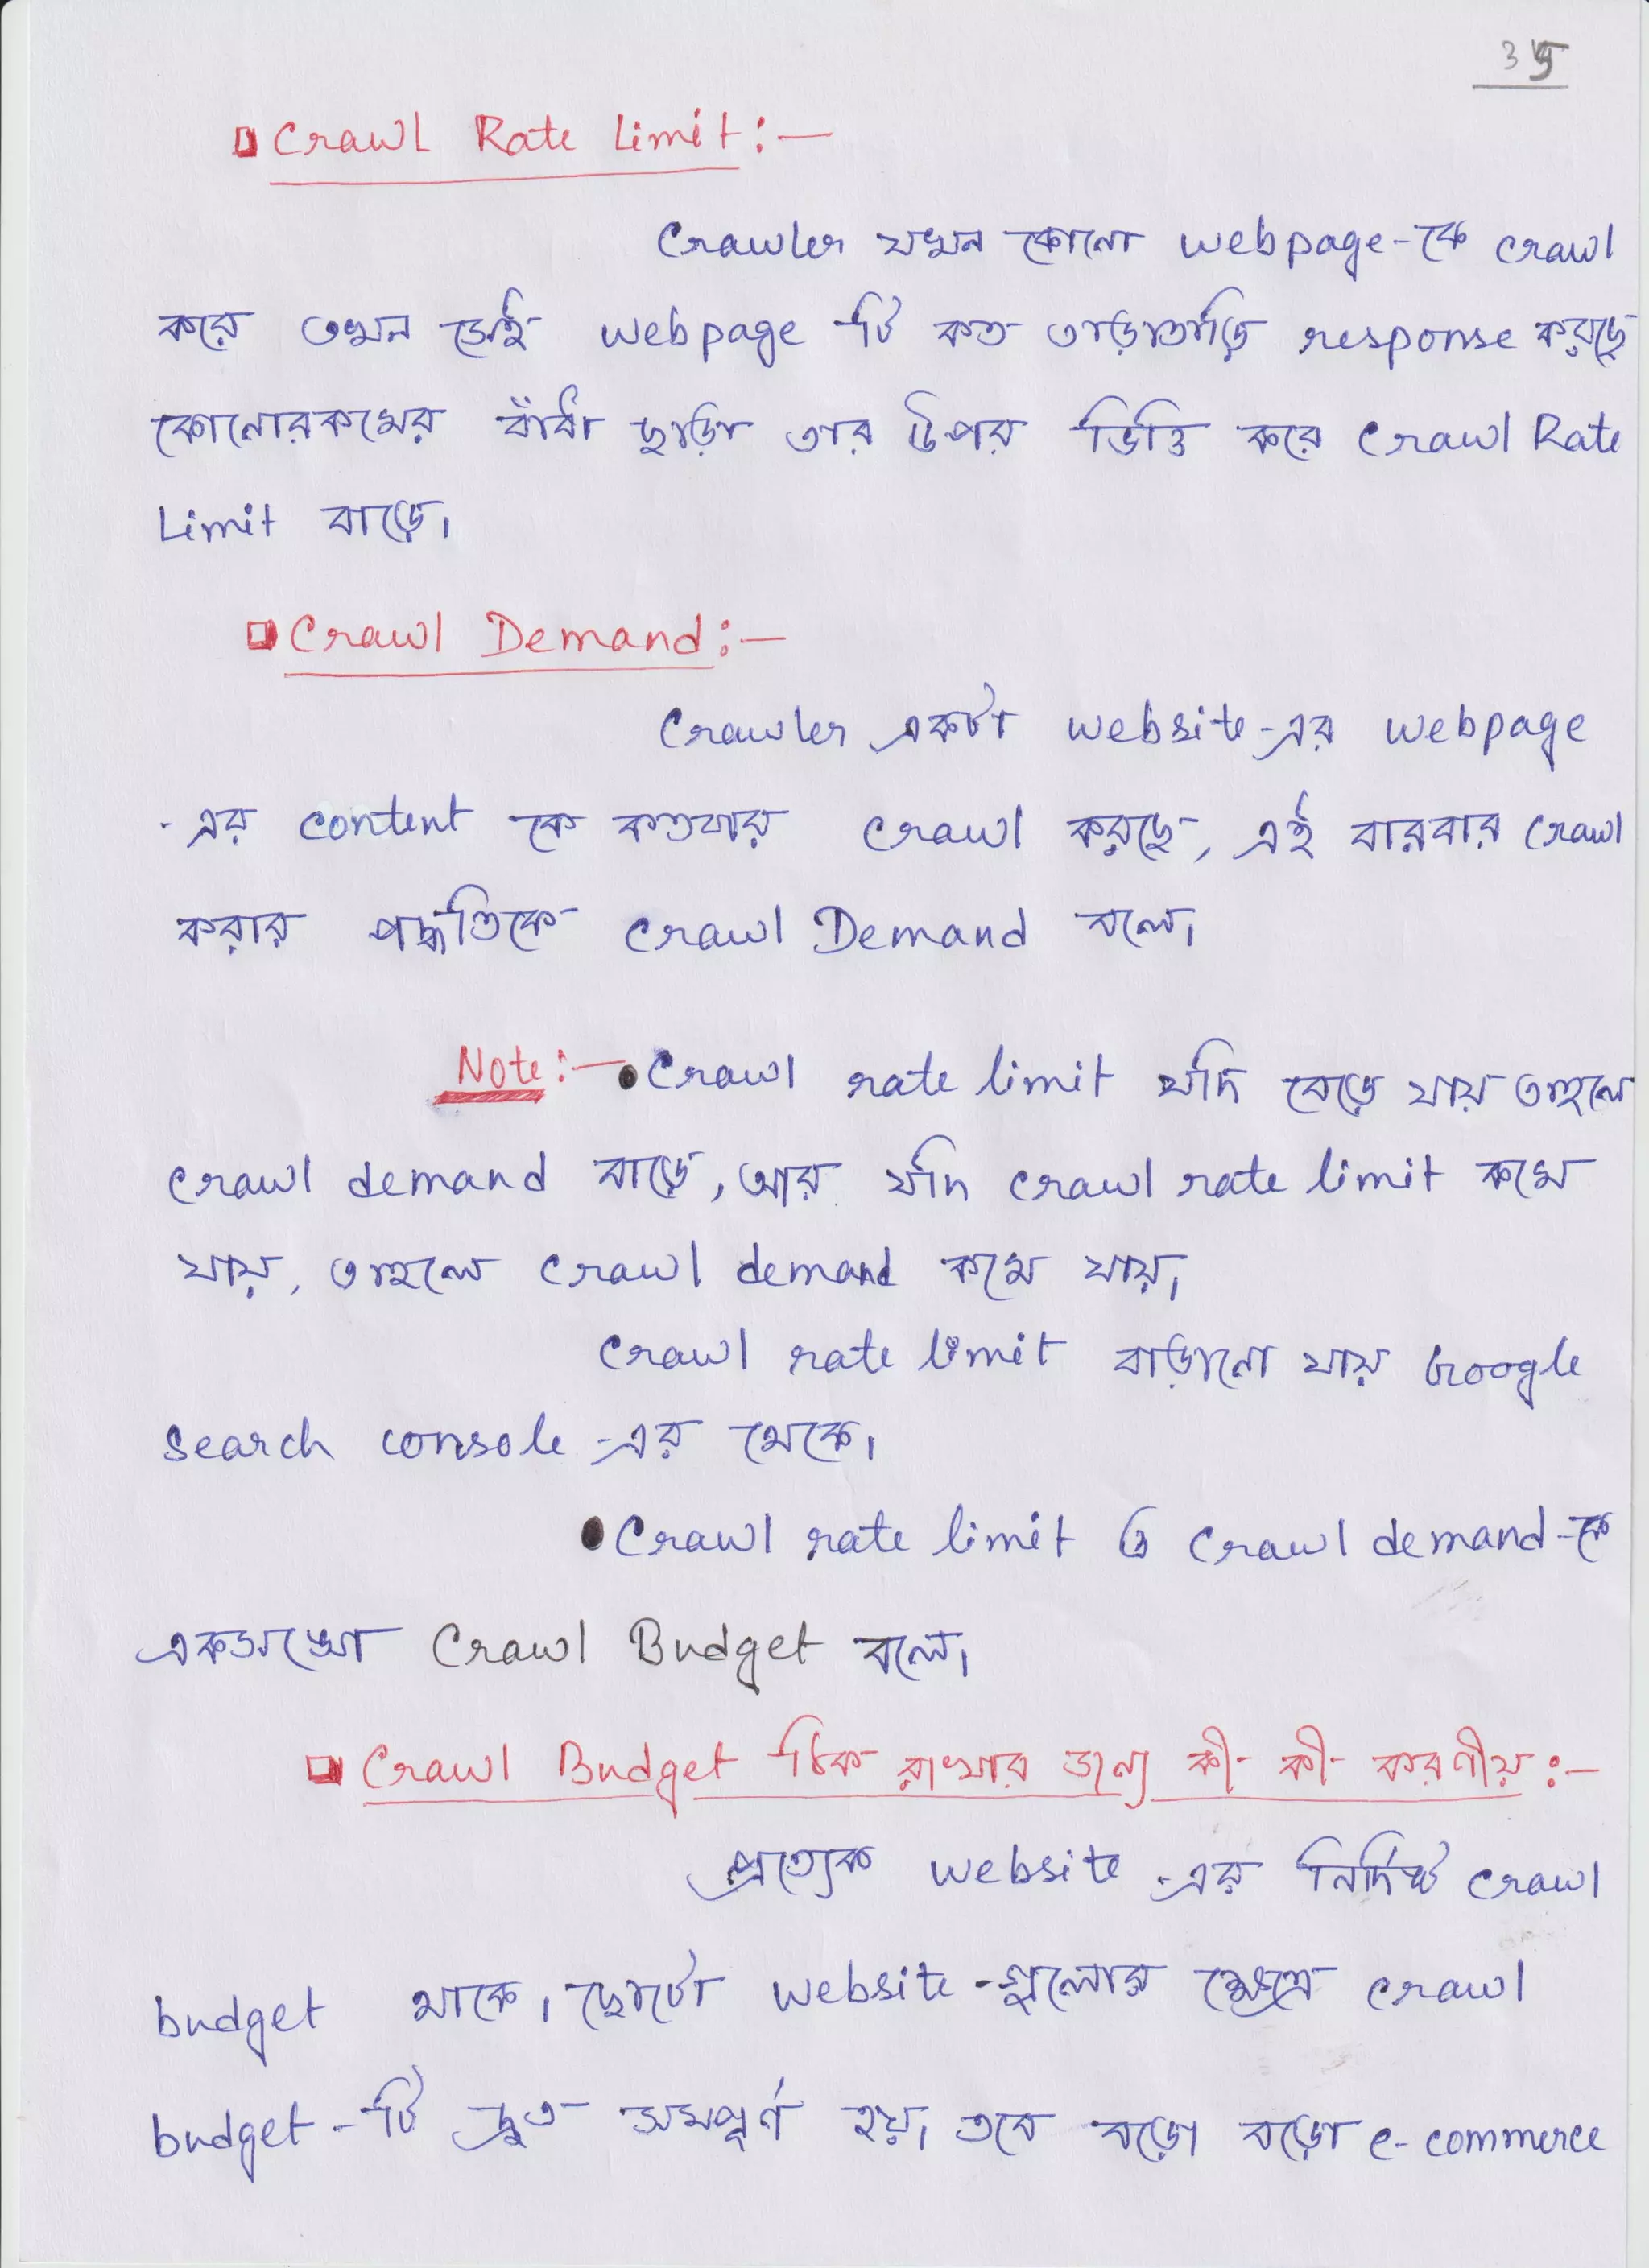 35
Crawl Rate Limit:—
Crawler যখন কোনো webpage-কে crawl
করে তখন সেই webpage টি কত তাড়াতাড়ি response করছে
কোনোরকমের বাঁধা ছাড়া তার উপর ভিত্তি করে Crawl Rate
Limit বাড়ে।
Crawl Demand:—
Crawler একটা website-এর webpage
-এর content কে কতবার crawl করছে, এই বারবার crawl
করার পদ্ধতিকে Crawl Demand বলে।
Note:— • Crawl rate limit যদি বেড়ে যায় তাহলে
crawl demand বাড়ে, আর যদি crawl rate limit কমে
যায়, তাহলে crawl demand কমে যায়।
Crawl rate limit বাড়ানো যায় Google
Search console-এর থেকে।
• Crawl rate limit ও Crawl demand-কে
একসঙ্গে Crawl Budget বলে।
Crawl Budget ঠিক রাখার জন্য কী কী করণীয়:—
প্রত্যেক website-এর নির্দিষ্ট crawl
budget থাকে। ছোটো website-গুলোর ক্ষেত্রে crawl
budget-টি দ্রুত সম্পূর্ণ হয়। তবে বড়ো বড়ো e-commerce